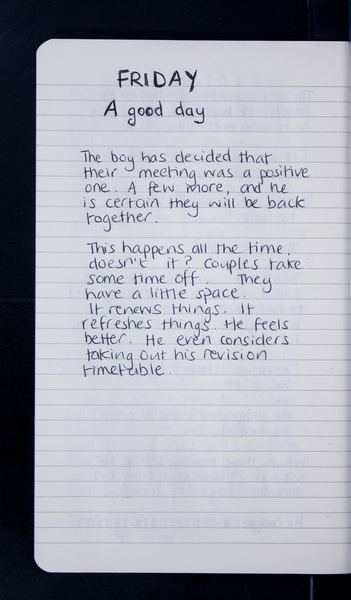 FRIDAY
A good day
The boy has decided that
their meeting was a positive
one. A few more, and he
is certain they will be back
together.
This happens all the time,
doesn't it? Couples take
some time off. They
have a little space.
It renews things. It
refreshes things. He feels
better. He even considers
taking out his revision
timetable.